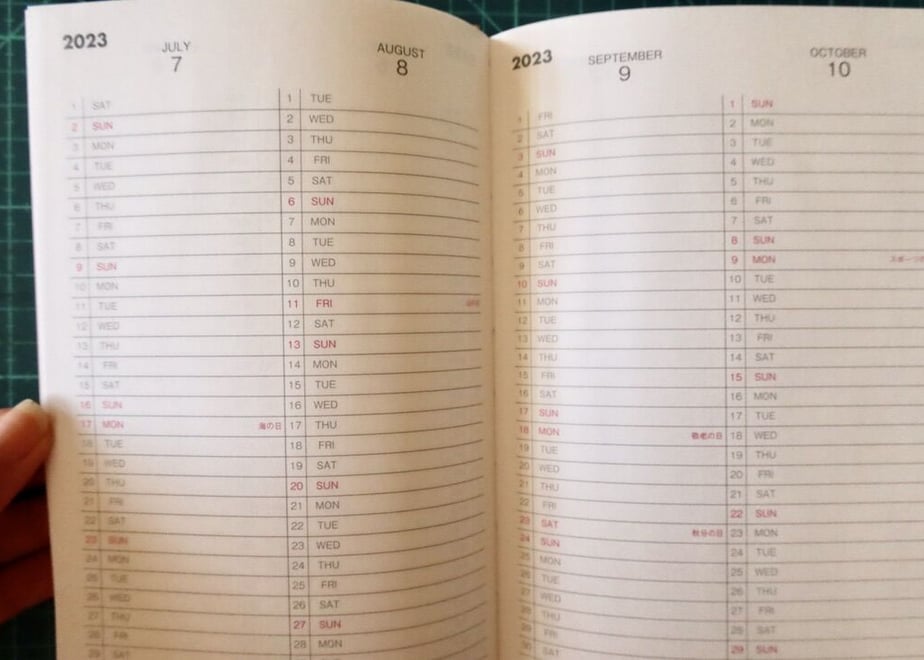 2023
JULY
7
1 SAT
2 SUN
3 MON
4 TUE
5 WED
6 THU
7 FRI
8 SAT
9 SUN
10 MON
11 TUE
12 WED
13 THU
14 FRI
15 SAT
16 SUN
17 MON 海の日
18 TUE
19 WED
20 THU
21 FRI
22 SAT
23 SUN
24 MON
25 TUE
26 WED
27 THU
28 FRI
29 SAT
AUGUST
8
1 TUE
2 WED
3 THU
4 FRI
5 SAT
6 SUN
7 MON
8 TUE
9 WED
10 THU
11 FRI
12 SAT
13 SUN
14 MON
15 TUE
16 WED
17 THU
18 FRI
19 SAT
20 SUN
21 MON
22 TUE
23 WED
24 THU
25 FRI
26 SAT
27 SUN
28 MON
2023
SEPTEMBER
9
1 FRI
2 SAT
3 SUN
4 MON
5 TUE
6 WED
7 THU
8 FRI
9 SAT
10 SUN
11 MON
12 TUE
13 WED
14 THU
15 FRI
16 SAT
17 SUN
18 MON 敬老の日
19 TUE
20 WED
21 THU
22 FRI
23 SAT 秋分の日
24 SUN
25 MON
26 TUE
27 WED
28 THU
29 FRI
30 SAT
OCTOBER
10
1 SUN
2 MON
3 TUE
4 WED
5 THU
6 FRI
7 SAT
8 SUN
9 MON スポーツの
10 TUE
11 WED
12 THU
13 FRI
14 SAT
15 SUN
16 MON
17 TUE
18 WED
19 THU
20 FRI
21 SAT
22 SUN
23 MON
24 TUE
25 WED
26 THU
27 FRI
28 SAT
29 SUN